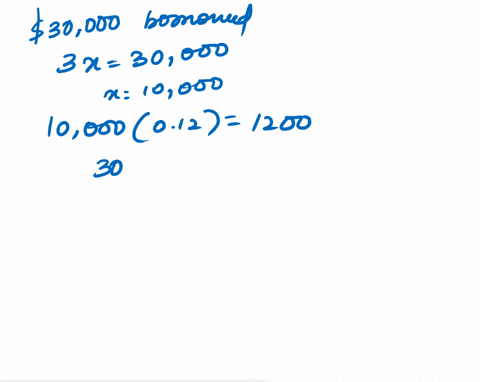 $30,000 borrowed
3x = 30,000
x = 10,000
10,000 (0.12) = 1200
30